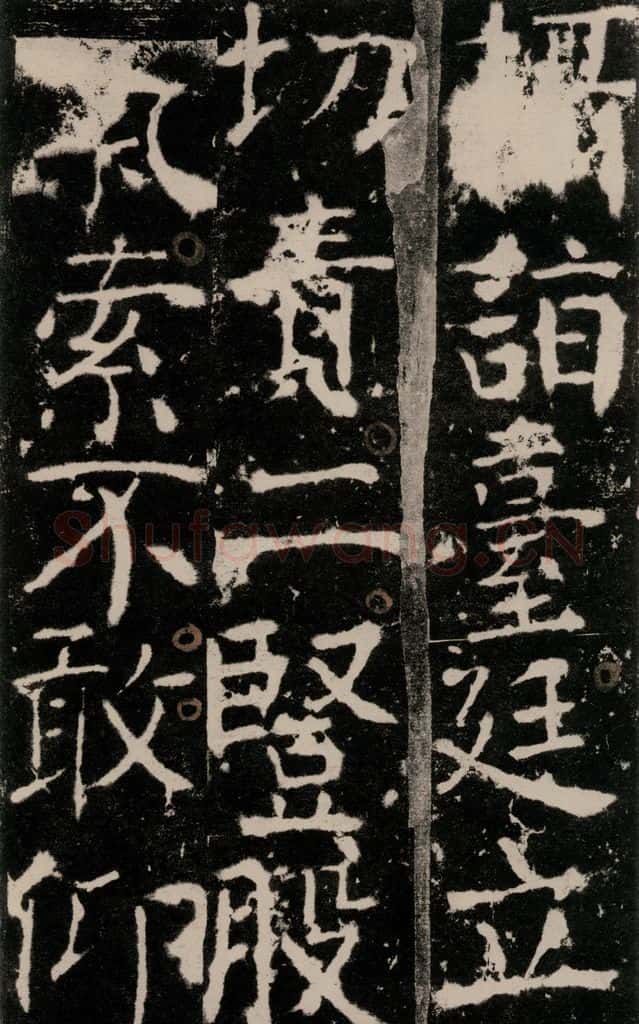 詣臺廷立
切責二豎股
气索不敢仰
Shufawang.CN